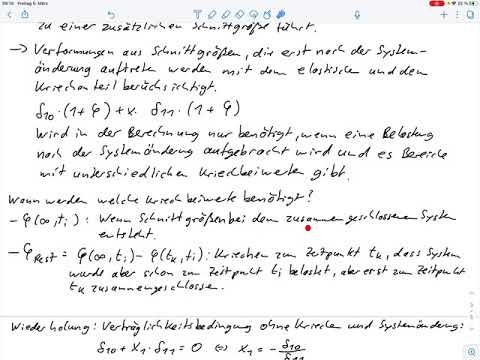 09:16 Freitag 5. März
zu einer zusätzlichen Schnittgröße führt.
→ Verformungen aus Schnittgrößen, die erst nach der System-
änderung auftreten werden mit dem elastischen und dem
Kriechanteil berücksichtigt.
δ10·(1+φ)+x· δ11·(1+φ)
Wird in der Berechnung nur benötigt, wenn eine Belastung
nach der Systemänderung aufgebracht wird und es Bereiche
mit unterschiedlichen Kriechbeiwerten gibt.
Wann werden welche Kriechbeiwerte benötigt?
- φ(∞,ti): Wenn Schnittgrößen bei dem zusammengeschlossenen System
entsteht.
- φRest = φ(∞,ti)-φ(tk,ti): Kriechen zum Zeitpunkt tk, dass System
wurde aber schon zum Zeitpunkt ti belastet, aber erst zum Zeitpunkt
tk zusammengeschlossen.
Wiederholung: Verträglichkeitsbedingung ohne Kriechen und Systemänderung:
δ10 + X1·δ11 = 0 ⇔ X1 = - δ10/δ11